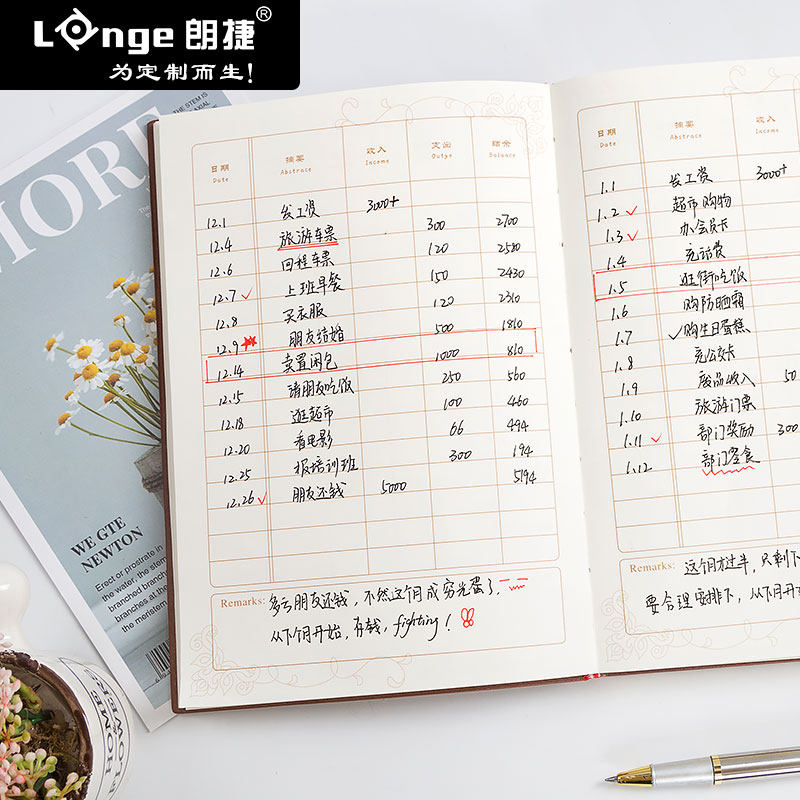 Longe 朗捷®
为定制而生!
MORE
THE STEM IS
AXIAL
WE GTE
NEWTON
Erect or prostrate in
日期 摘要 收入 支出 结余
Date Abstrace Income Outye Balance
12.1 发工资 3000+
12.4 旅游车票 300 2700
12.6 回程车票 120 2580
12.7 上班早餐 150 2430
12.8 买衣服 120 2310
12.9 朋友结婚 500 1810
12.14 卖置闲包 1000 810
12.15 请朋友吃饭 250 560
12.18 逛超市 100 460
12.20 看电影 66 494
12.25 报培训班 300 194
12.26 朋友还钱 5000 5194
Remarks: 多亏朋友还钱,不然这个月成穷光蛋了,
从下个月开始,存钱,fighting!
日期 摘要 收入
Date Abstrace Income
1.1 发工资 3000+
1.2 超市购物
1.3 办会员卡
1.4 充话费
1.5 逛街吃饭
1.6 购防晒霜
1.7 购生日蛋糕
1.8 充公交卡
1.9 废品收入 50
1.10 旅游门票
1.11 部门奖励 300
1.12 部门零食
Remarks: 这个月才过半,只剩下
要合理安排下,从下月开
HOME